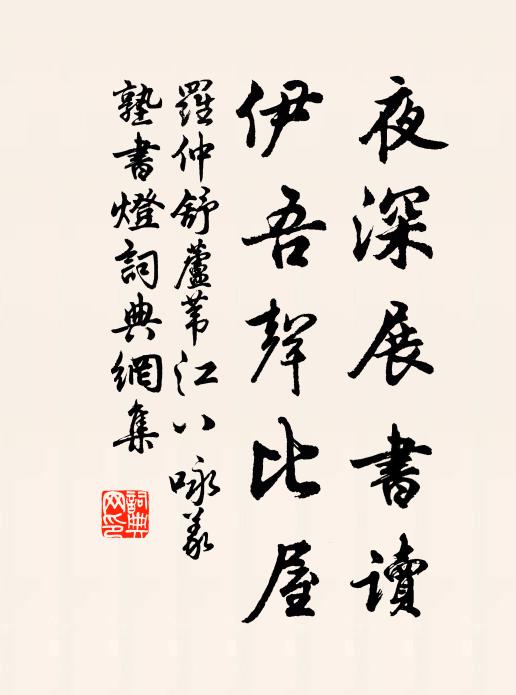 夜深展書讀
伊吾聲比屋
羅仲舒蘆葦江八咏義
塾書燈詞典網集
詞典網印